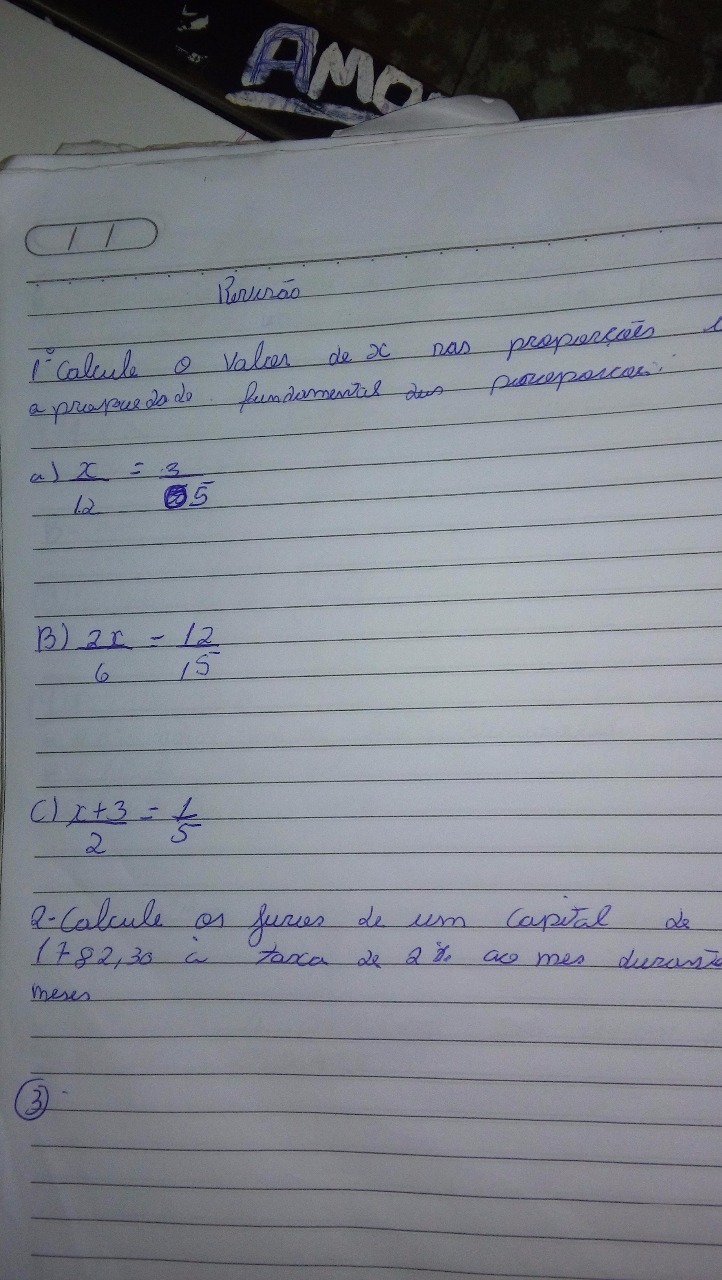 AMO
Revisão
1º Calcule o valor de x nas proporções
a propriedade fundamental das proporções:
a) x/12 = 3/5
B) 2x/6 = 12/15
C) x+3/2 = 1/5
2-Calcule os juros de um capital de
1782,30 à taxa de 2% ao mes durante
meses
3